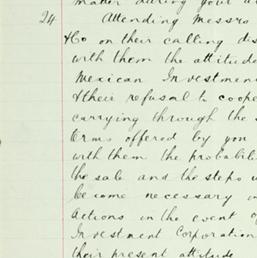 matter during your
24 Attending Messrs
& Co on their calling dis
with them the attitude
Mexican Investmen
& their refusal to coope
carrying through the s
terms offered by you
with them the probabili
the sale and the steps w
become necessary
actions in the event of
Investment Corporation
their present attitude